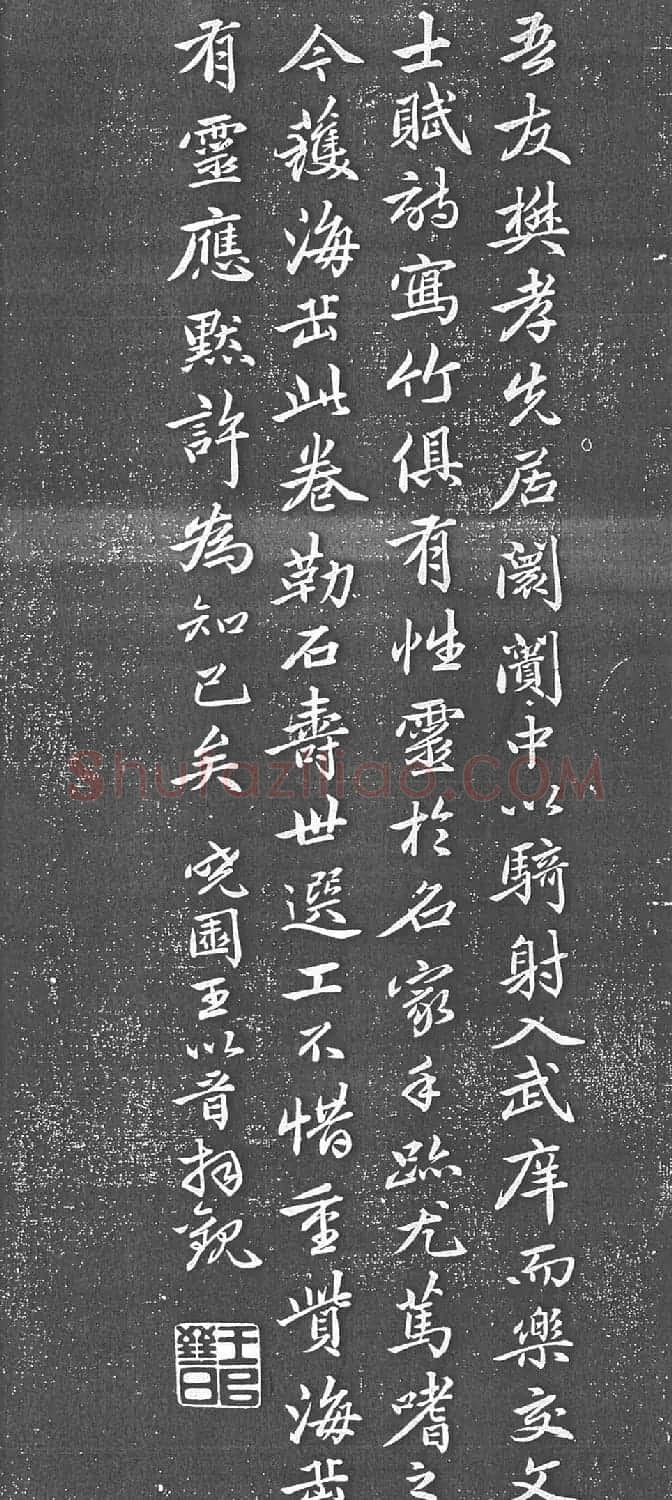 吾友樊孝先居闤闠中以騎射入武庠而樂交文
士賦詩寫竹俱有性靈於名家手跡尤篤嗜之
今獲海岳此卷勒石壽世選工不惜重貲海岳
有靈應默許為知己矣
曉園王以晉拜觀
Shufaziliao.COM